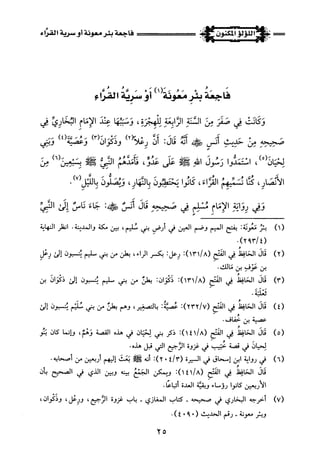 اللؤلؤ المكنون
فاجعة بئر معونة أو سرية القراء
فَاجِعَةُ بِئْرِ مَعُونَةَ(١) أَوْ سَرِيَّةُ القُرَّاءِ
وَكَانَتْ فِي صَفَرَ مِنَ السَّنَةِ الرَّابِعَةِ لِلْهِجْرَةِ، وَسَبَبُهَا عِنْدَ الإِمَامِ البُخَارِيِّ فِي
صَحِيحِهِ مِنْ حَدِيثِ أَنَسٍ ﷺ أَنَّهُ قَالَ: أَنَّ رِعْلًا(٢) وَذَكْوَانَ(٣) وَعُصَيَّةَ(٤) وَبَنِي
لِحْيَانَ(٥)، اسْتَمَدُّوا رَسُولَ اللهِ ﷺ عَلَى عَدُوٍّ، فَأَمَدَّهُمُ النَّبِيُّ ﷺ بِسَبْعِينَ(٦) مِنَ
الأَنْصَارِ، كُنَّا نُسَمِّيهِمُ القُرَّاءَ، كَانُوا يَحْتَطِبُونَ بِالنَّهَارِ، وَيُصَلُّونَ بِاللَّيْلِ(٧).
وَفِي رِوَايَةِ الإِمَامِ مُسْلِمٍ فِي صَحِيحِهِ قَالَ أَنَسٌ ﷺ: جَاءَ نَاسٌ إِلَى النَّبِيِّ
(١) بِئْرُ مَعُونَةَ: بفتح الميم وضم العين في أرض بني سُليم، بين مكة والمدينة. انظر النهاية
(٢٩٣/٤)
(٢) قَالَ الحَافِظُ فِي الفَتْحِ (١٣١/٨): رِعل: بكسر الراء، بطن من بني سليم يُنسبون إلى رِعْلِ
بن عَوْفِ بن مَالك.
(٣) قَالَ الحَافِظُ فِي الفَتْحِ (١٣١/٨): ذَكْوَان: بطنٌ من بني سليم يُنسبون إلى ذَكْوَانَ بن
ثَعْلَبَةَ.
(٤) قَالَ الحَافِظُ فِي الفَتْحِ (٢٣٢/٧): عُصَيَّةُ: بالتصغير، وهم بطنٌ من بني سُلَيْمٍ يُنسبون إلى
عصية بن خُفاف.
(٥) قَالَ الحَافِظُ فِي الفَتْحِ (١٤١/٨): ذكر بني لِحْيَان في هذه القصة وَهْمٌ، وإنما كان بَنُو
لِحيانَ في قصة خُبَيب في غزوة الرَّجيع التي قبل هذه.
(٦) في رواية ابن إسحاق في السيرة (٢٠٤/٣): أنه ﷺ بَعَثَ إليهم أربعين من أصحابه.
قَالَ الحَافِظُ فِي الفَتْحِ (١٤١/٨): ويمكن الجَمْعُ بينه وبين الذي في الصحيح بأن
الأربعين كانوا رؤساء وبقيَّة العدة أتباعًا.
(٧) أخرجه البخاري في صحيحه ـ كتاب المغازي ـ باب غزوة الرَّجِيع، ورِعْل، وذَكْوان،
وبئر معونة ـ رقم الحديث (٤٠٩٠).
٢٥